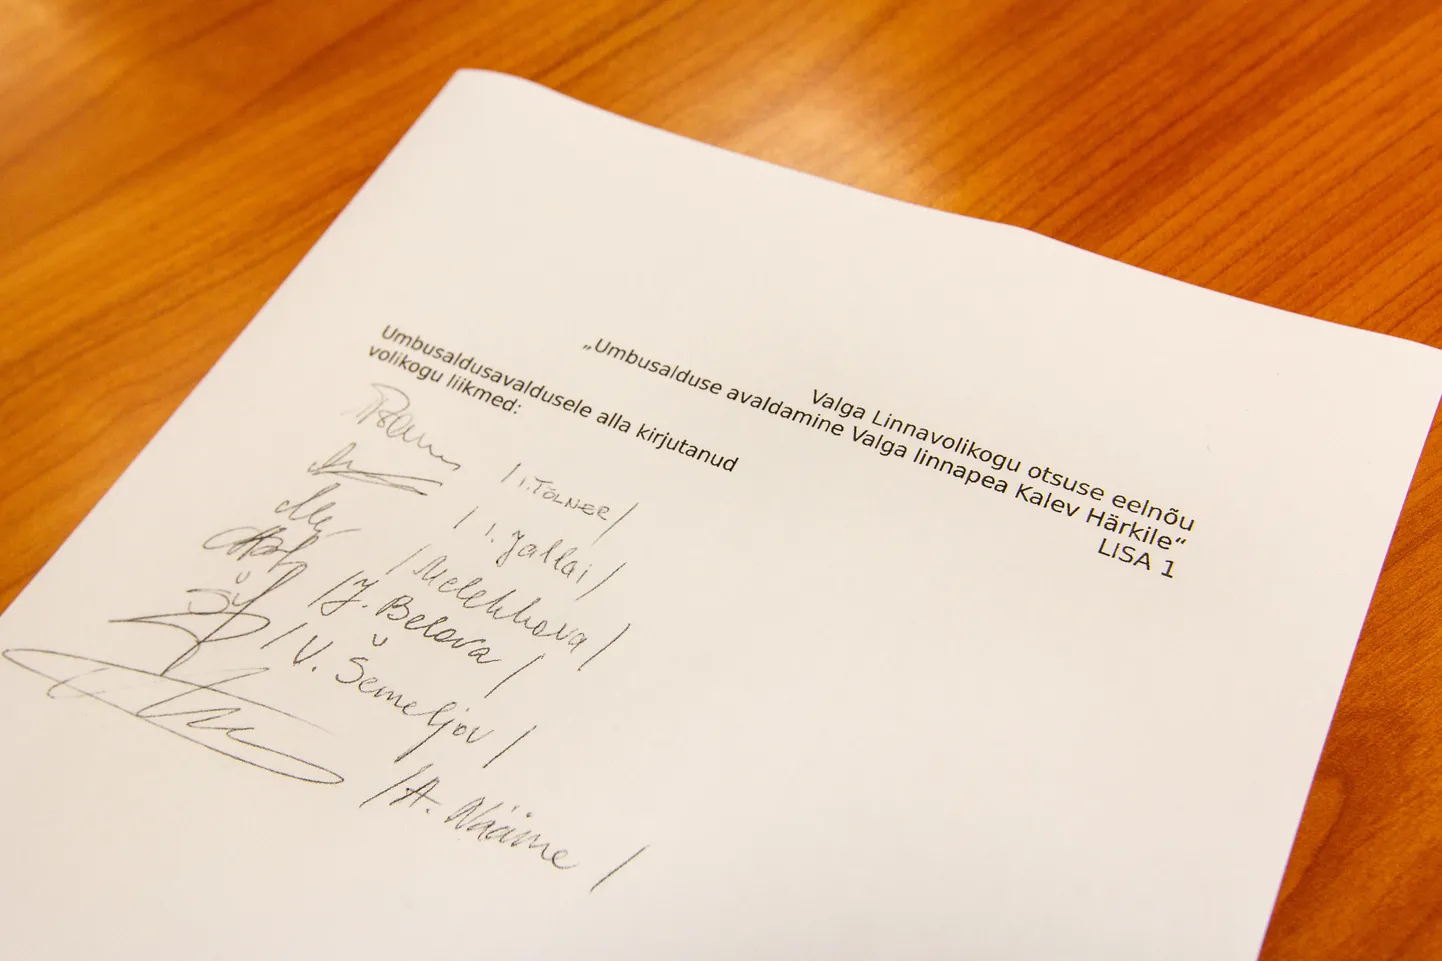 Valga Linnavolikogu otsuse eelnõu
„Umbusalduse avaldamine Valga linnapea Kalev Härkile“
LISA 1
Umbusaldusavaldusele alla kirjutanud
volikogu liikmed:
/ I. TÕLNER /
/ I. Jallai /
/ Melekhova /
/ J. Belova /
/ V. Šemeljov /
/ A. Nääme /